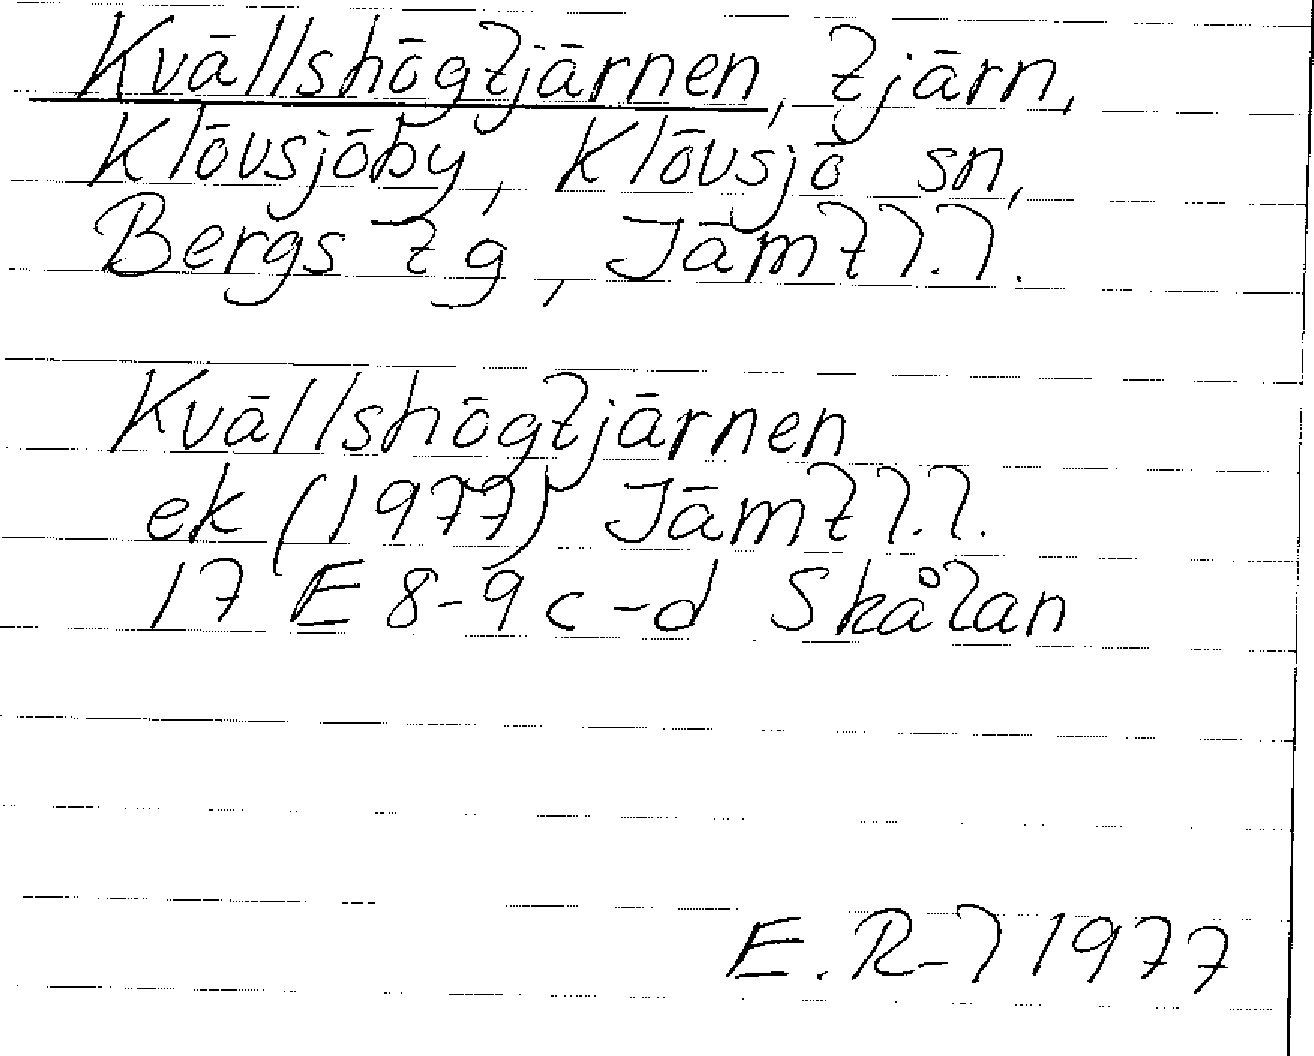 Kvällshögtjärnen, tjärn,
Klövsjöby, Klövsjö sn,
Bergs tg, Jämtl.l.
Kvällshögtjärnen
ek (1977) Jämtl.l.
17 E 8-9 c-d Skålan
E. R-l 1977